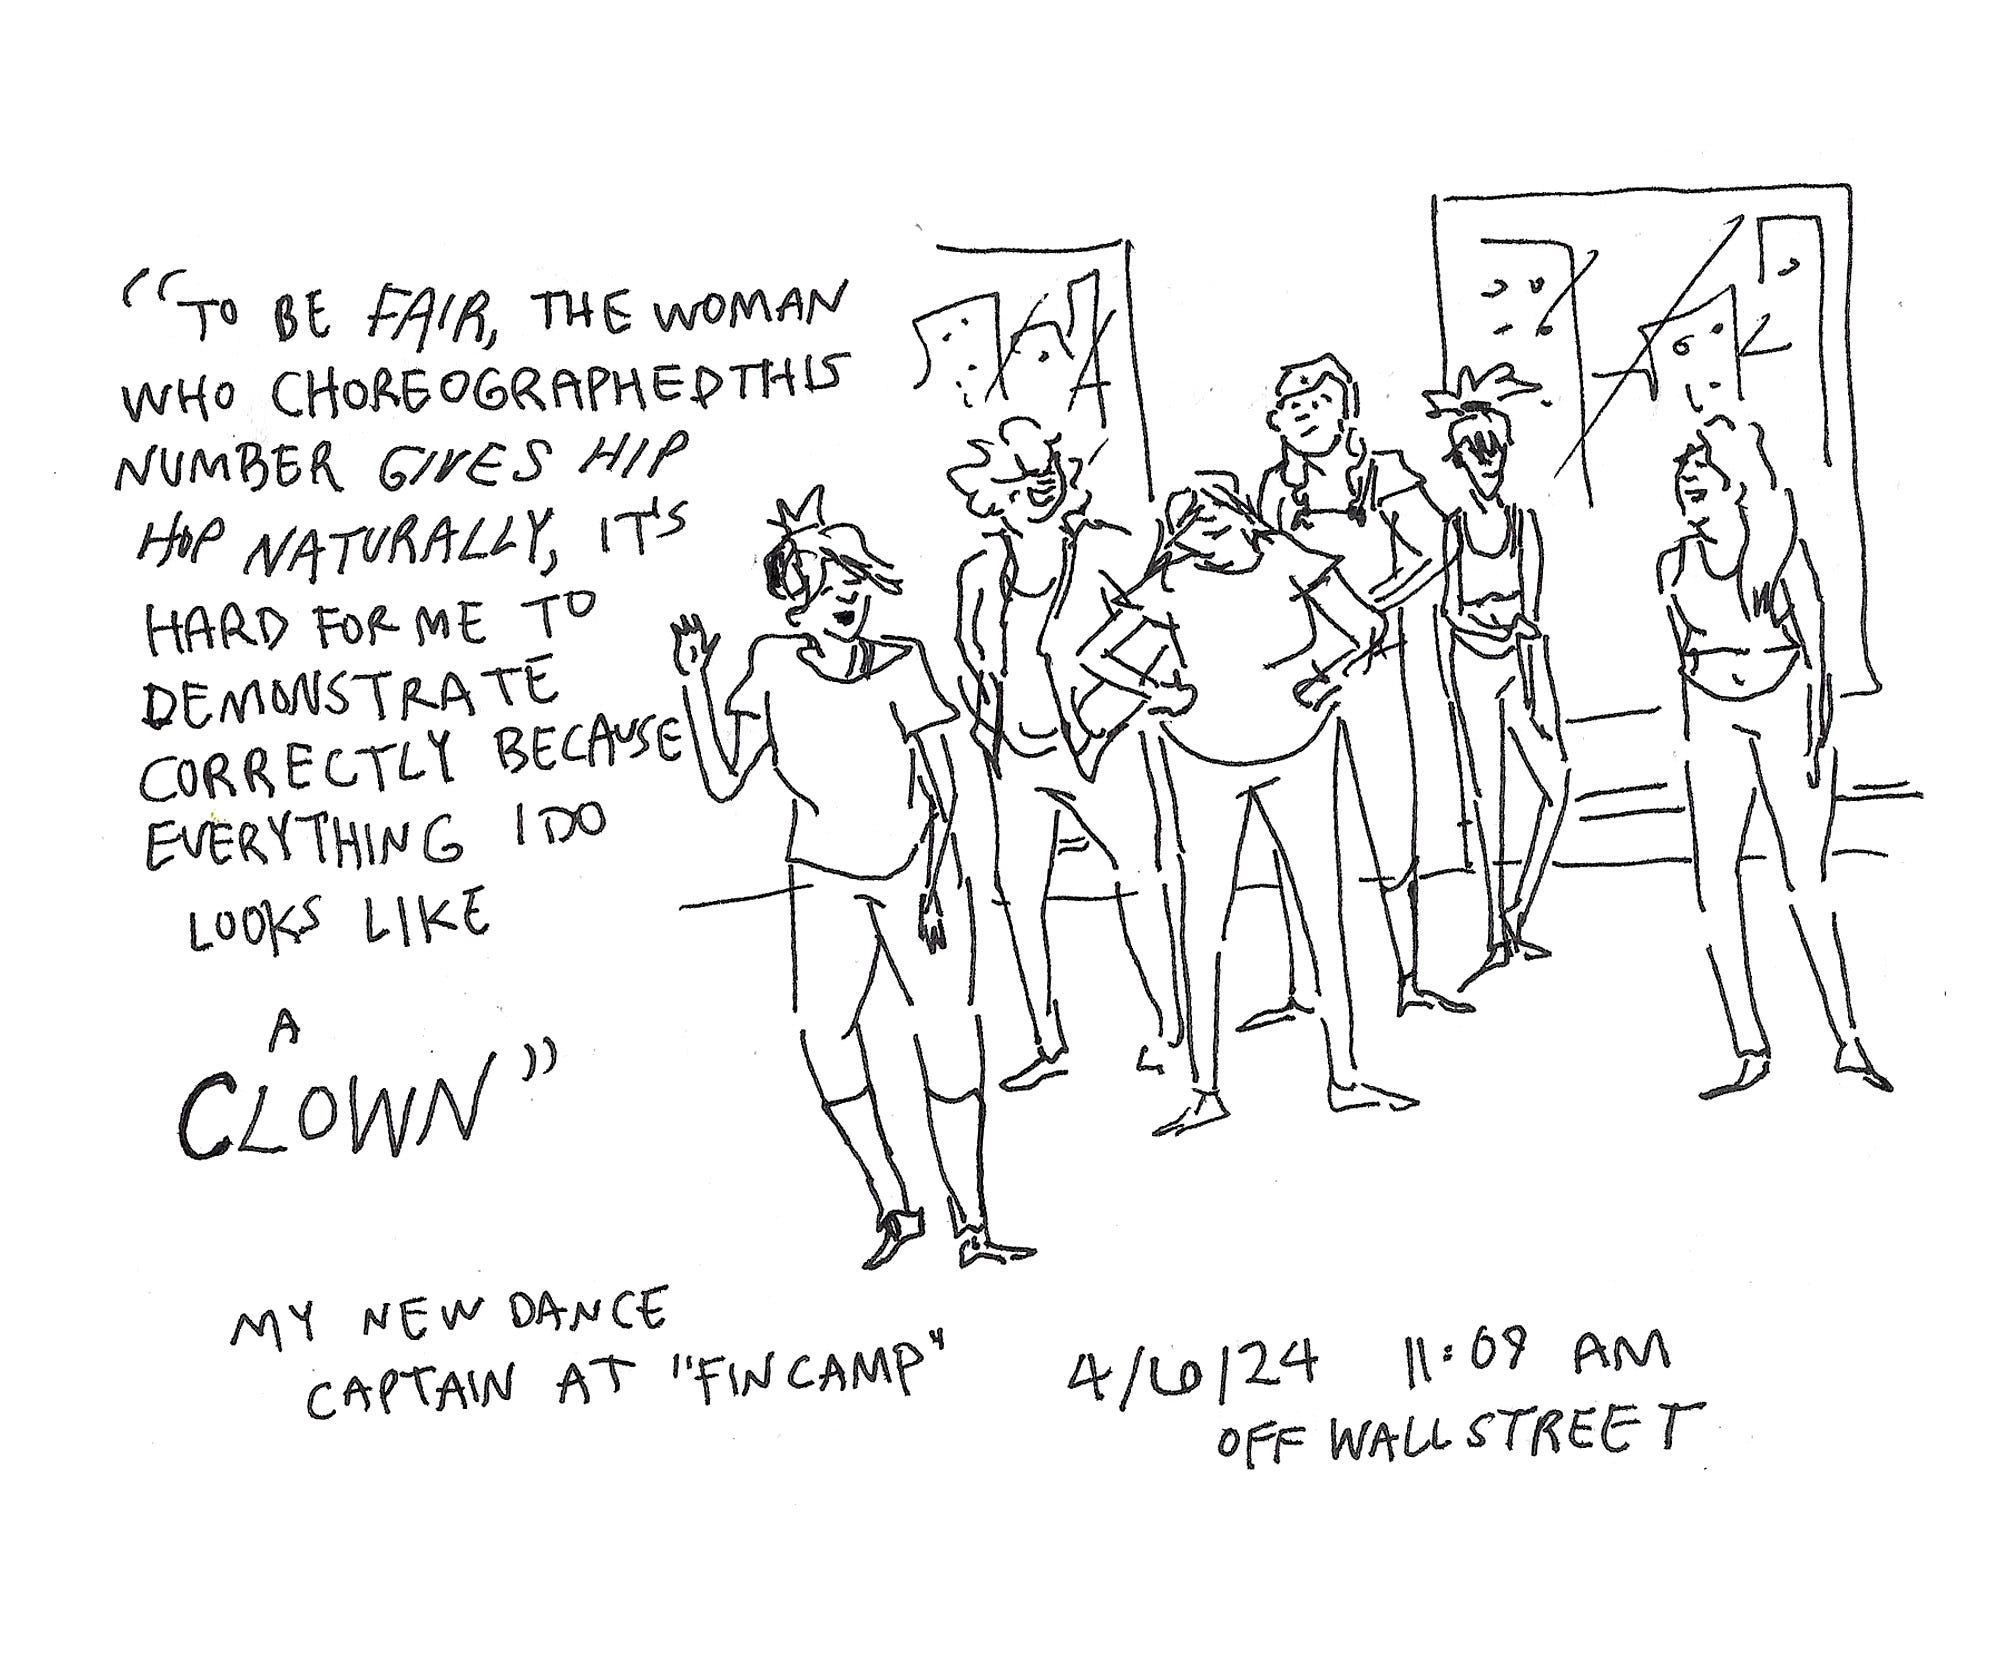 "TO BE FAIR, THE WOMAN
WHO CHOREOGRAPHED THIS
NUMBER GIVES HIP
HOP NATURALLY, IT'S
HARD FOR ME TO
DEMONSTRATE
CORRECTLY BECAUSE
EVERYTHING I DO
LOOKS LIKE
A
CLOWN"
MY NEW DANCE
CAPTAIN AT "FINCAMP"
4/6/24 11:09 AM
OFF WALL STREET